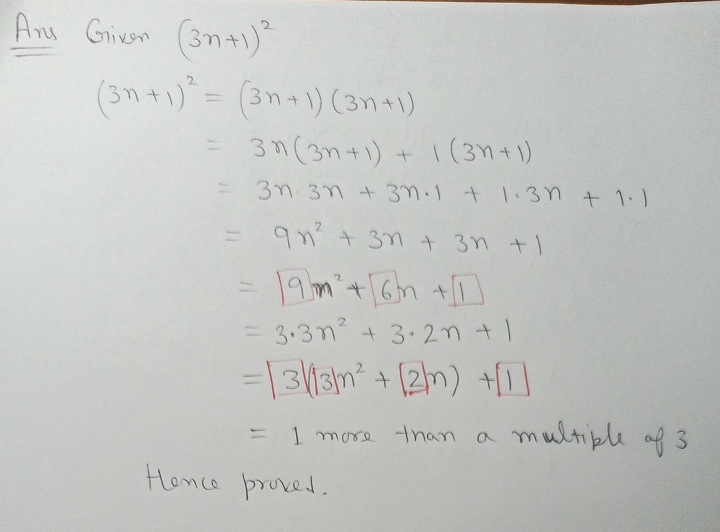 Ans Given (3n+1)²
(3n+1)² = (3n+1)(3n+1)
= 3n(3n+1) + 1(3n+1)
= 3n·3n + 3n·1 + 1·3n + 1·1
= 9n² + 3n + 3n + 1
= 9n² + 6n + 1
= 3·3n² + 3·2n + 1
= 3(3n² + 2n) + 1
= 1 more than a multiple of 3
Hence proved.